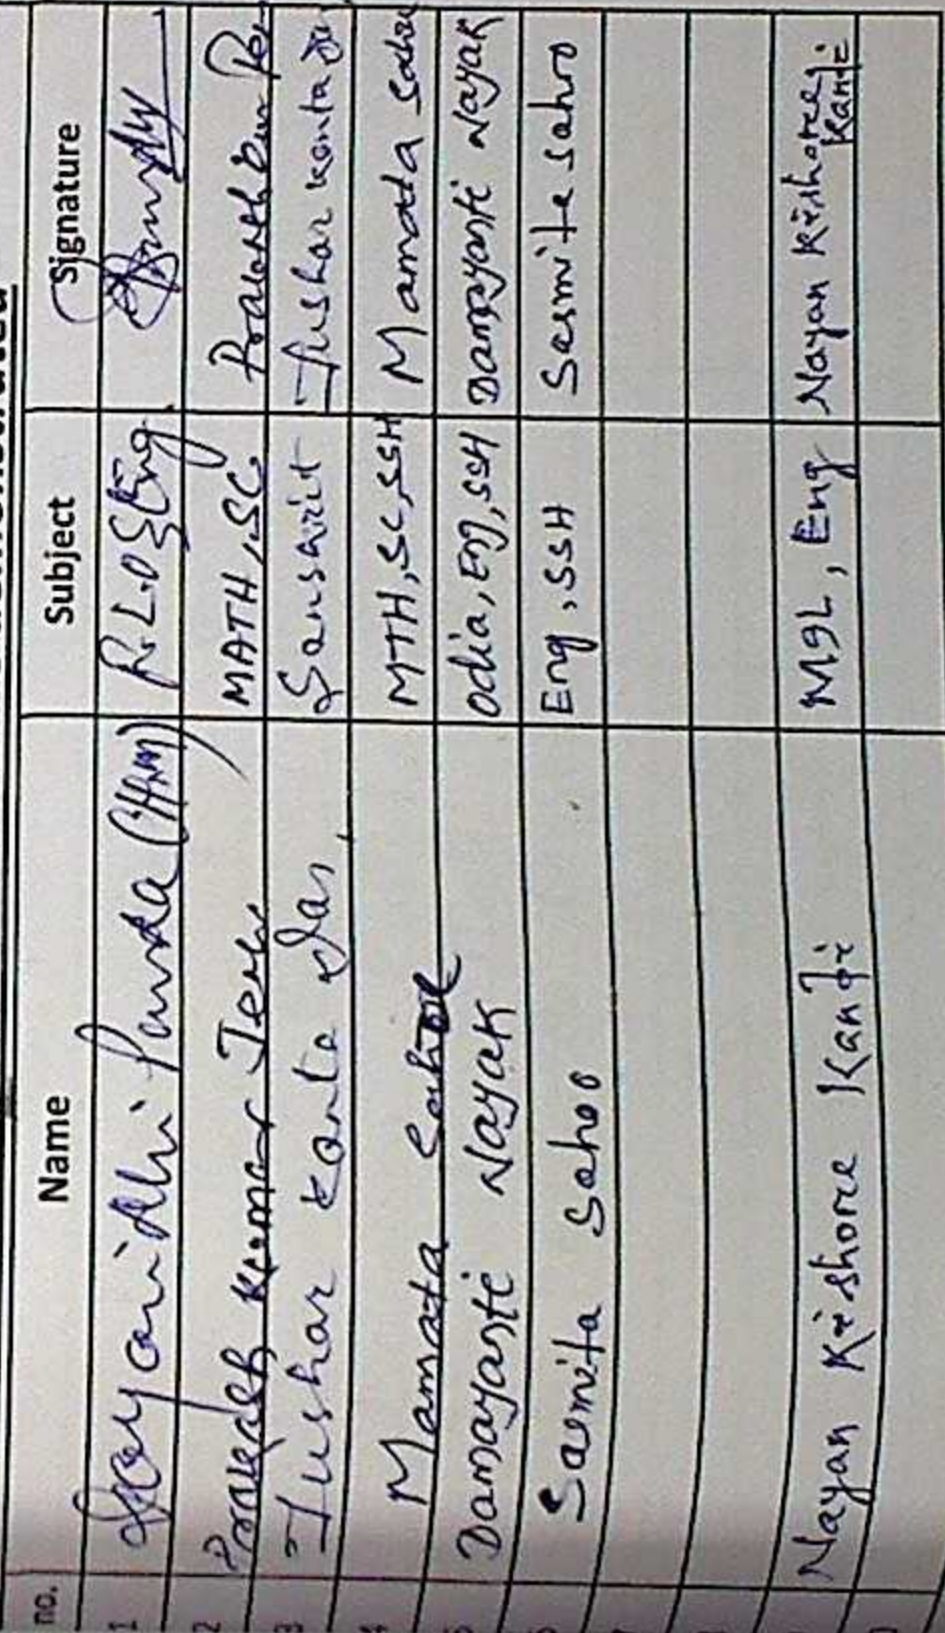 no. Name Subject Signature
1 Panda (HM) Eng
2 Kumar Jena MATH, SC
3 Tushar Kanta Das, Sanskrit Tushar Kanta
4 Mamata Sahoo MTH, SC, SSH Mamata Sahoo
5 Damayanti Nayak Odia, Eng, SSH Damayanti Nayak
6 Sasmita Sahoo Eng, SSH Sasmita Sahoo
Nayan Kishore Kandi MGL, Eng Nayan Kishore
Kandi